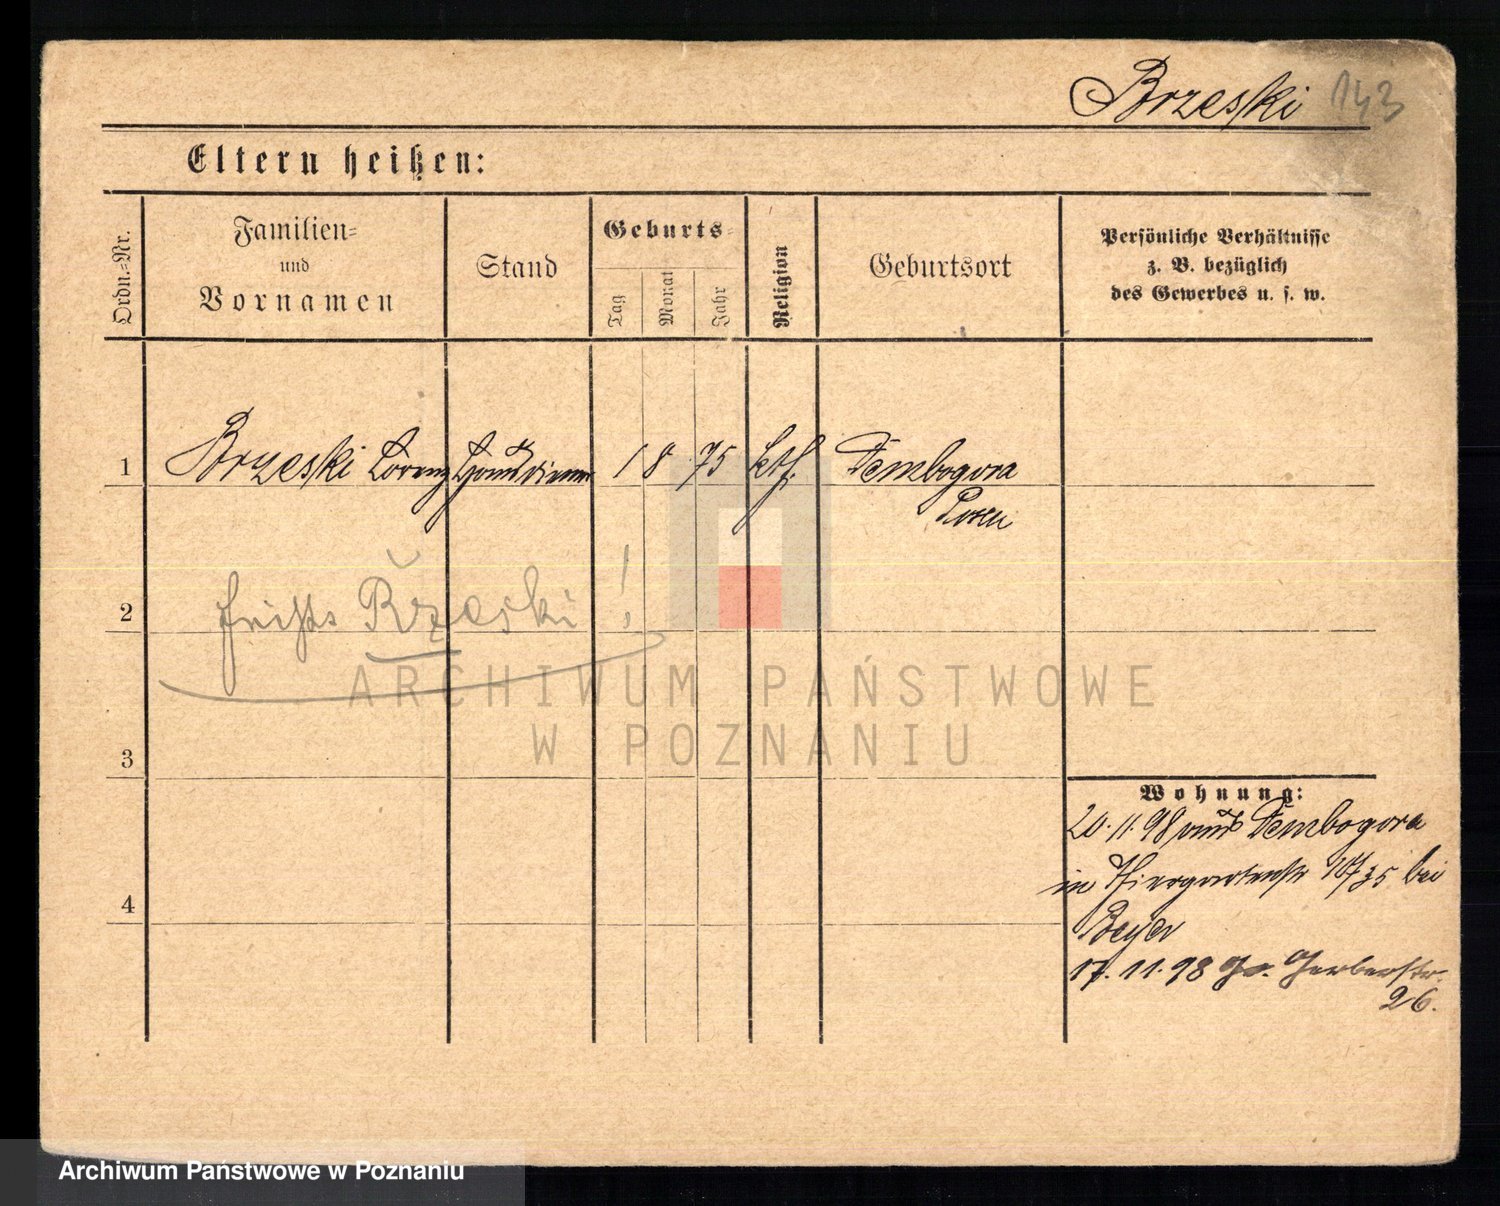 Brzeski 143
Eltern heißen:
Ordn.-Nr.
Familien-
und
Vornamen
Stand
Geburts-
Tag
Monat
Jahr
Religion
Geburtsort
Persönliche Verhältnisse
z. B. bezüglich
des Gewerbes u. s. w.
1 Brzeski Lorenz Hausdiener 1 8 75 kth. Dembogora
Posen
2 Rzeski!
ARCHIWUM PAŃSTWOWE
W POZNANIU
3
Wohnung:
20.11.98 aus Dembogora
in Thiergartenstr bei
4
Beyer
17.11.98 Gr. Gerberstr.
26.
Archiwum Państwowe w Poznaniu